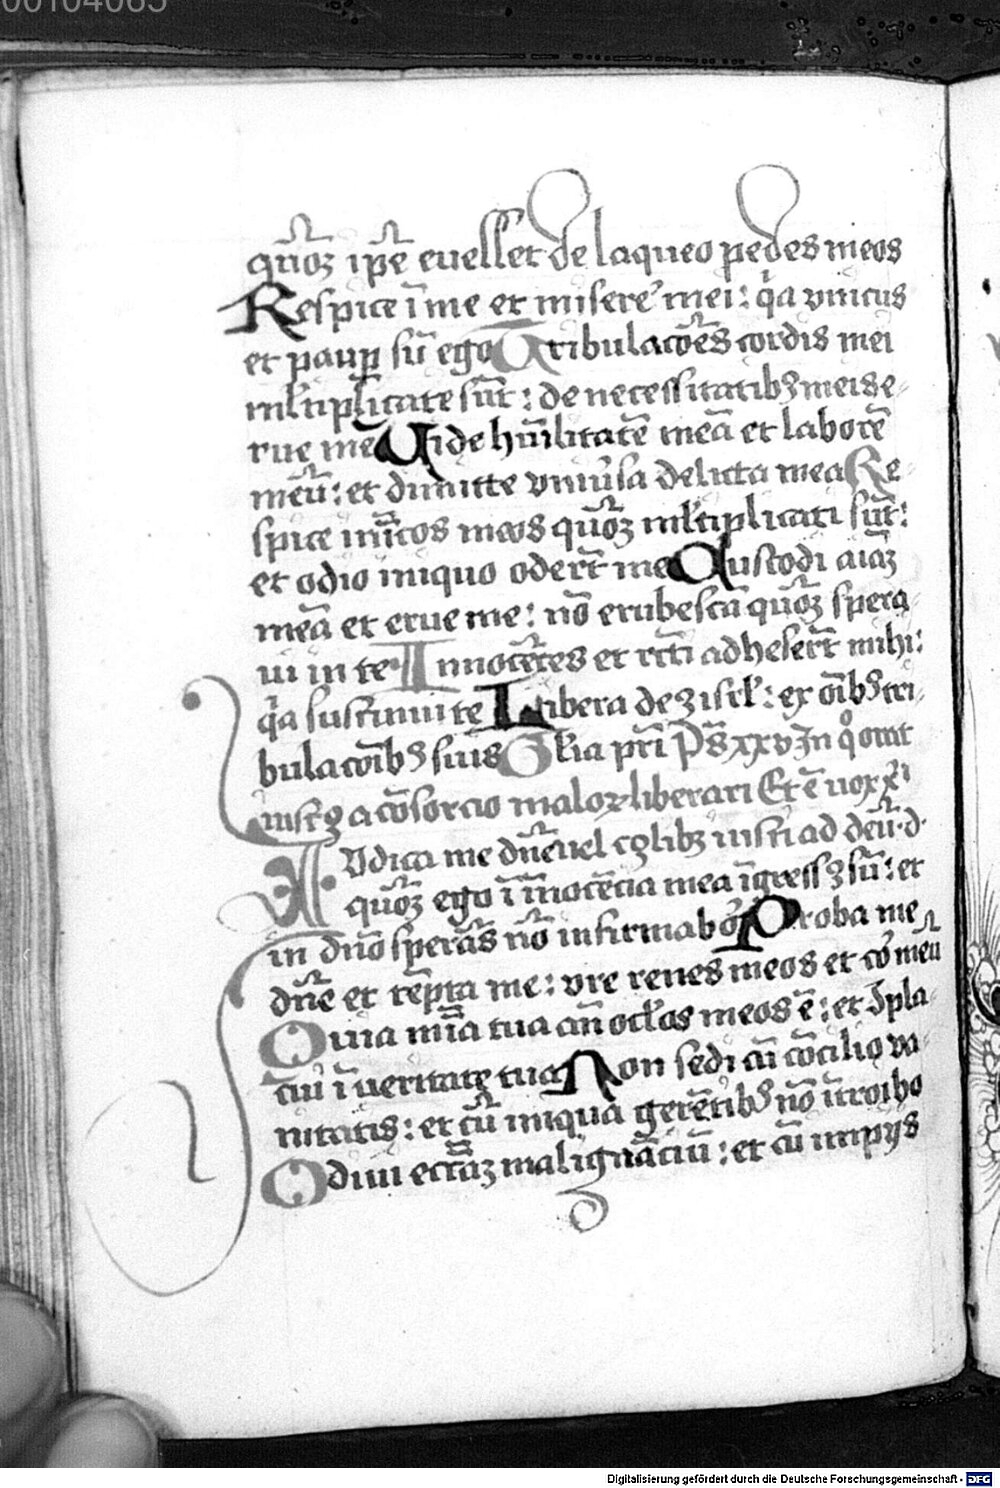 00104065
qm̄oꝫ ip̄e euellet de laqueo pedes meos
Respice ī me et misere mei: q̄a vnicus
et paup̱ sū ego Tribulacōes cordis mei
ml̄tiplicate sūt: de necessitatibꝫ meis e-
rue me Vide hūilitatē meā et laborē
meū: et dimitte vniūsa delicta mea Re-
spice inīcos meos qm̄oꝫ ml̄tiplicati sūt:
et odio iniquo oderūt me Custodi aīaꝫ
meā et erue me: nō erubescā qm̄oꝫ spera
ui in te Innocētes et rc̄ti adheserūt mihi:
q̄a sustinui te Libera de⁹ isrl̄: ex oībꝫ tri-
bulacoībꝫ suis Gl̄ia pr̄i Ps xxv In qͦ orat
iust⁹ a cōsorcio maloꝝ liberari Et ē uox xi
Vdica me dn̄e uel cꝫlibꝫ iusti ad deū d
qm̄oꝫ ego ī īnocēcia mea īgress⁹ sū: et
in dn̄o sperās nō infirmabor Proba me
dn̄e et tēpta me: vre renes meos et cor meū
Quia mīa tua an̄ ocl̄os meos ē: et ꝯpla-
cui ī ueritate tua Non sedi cū cōcilio va-
nitatis: et cū iniqua gerētibꝫ nō ītroibo
Odiui eccl̄iaꝫ malignāciū: et cū impijs
Digitalisierung gefördert durch die Deutsche Forschungsgemeinschaft - DFG